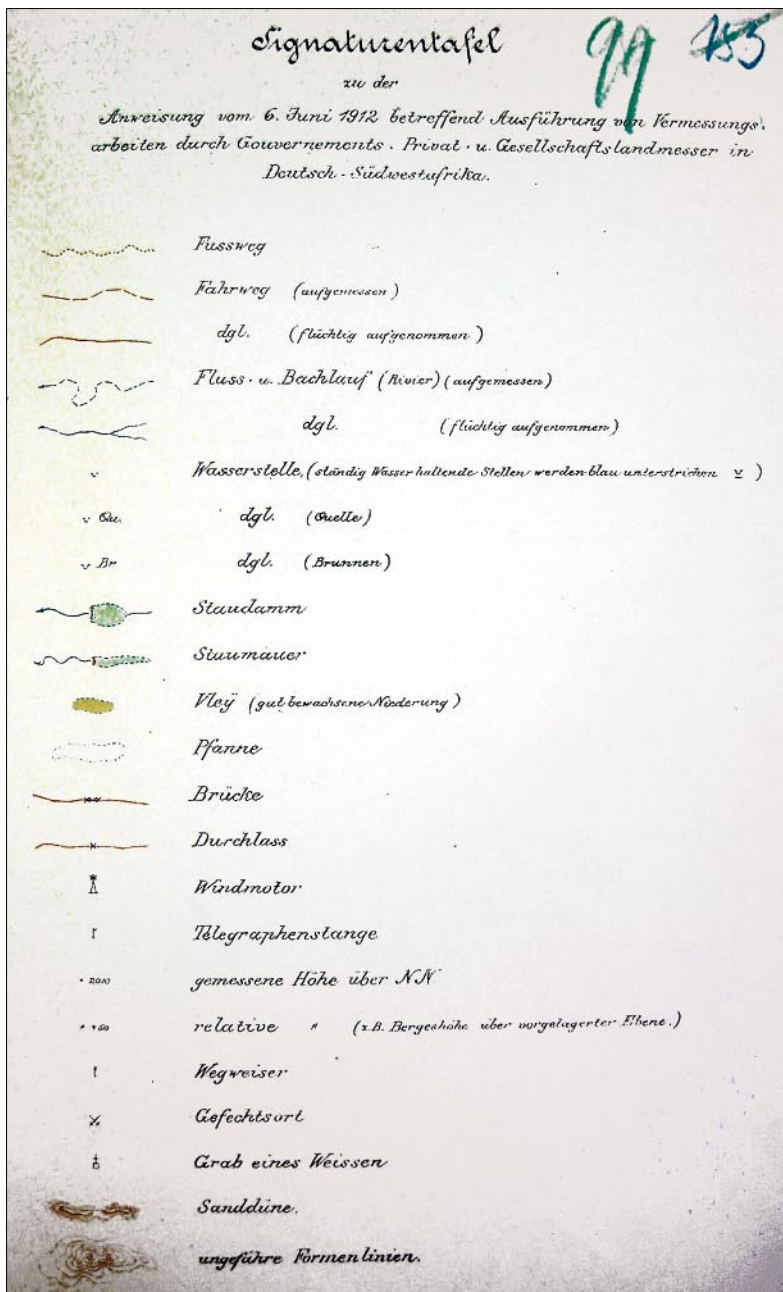 Signaturentafel
99 155
zu der
Anweisung vom 6. Juni 1912 betreffend Ausführung von Vermessungs-
arbeiten durch Gouvernements- Privat- u. Gesellschaftslandmesser in
Deutsch-Südwestafrika.
Fussweg
Fahrweg (aufgemessen)
dgl. (flüchtig aufgenommen)
Fluss- u. Bachlauf (Rivier) (aufgemessen)
dgl. (flüchtig aufgenommen)
Wasserstelle, (ständig Wasser haltende Stellen werden blau unterstrichen v )
v Qu. dgl. (Quelle)
v Br dgl. (Brunnen)
Staudamm
Staumauer
Vleÿ (gut bewachsene Niederung)
Pfanne
Brücke
Durchlass
Windmotor
Telegraphenstange
• 2010 gemessene Höhe über NN
+50 relative " (z.B. Bergeshöhe über vorgelagerter Ebene.)
Wegweiser
Gefechtsort
Grab eines Weissen
Sanddüne.
ungefähre Formenlinien.